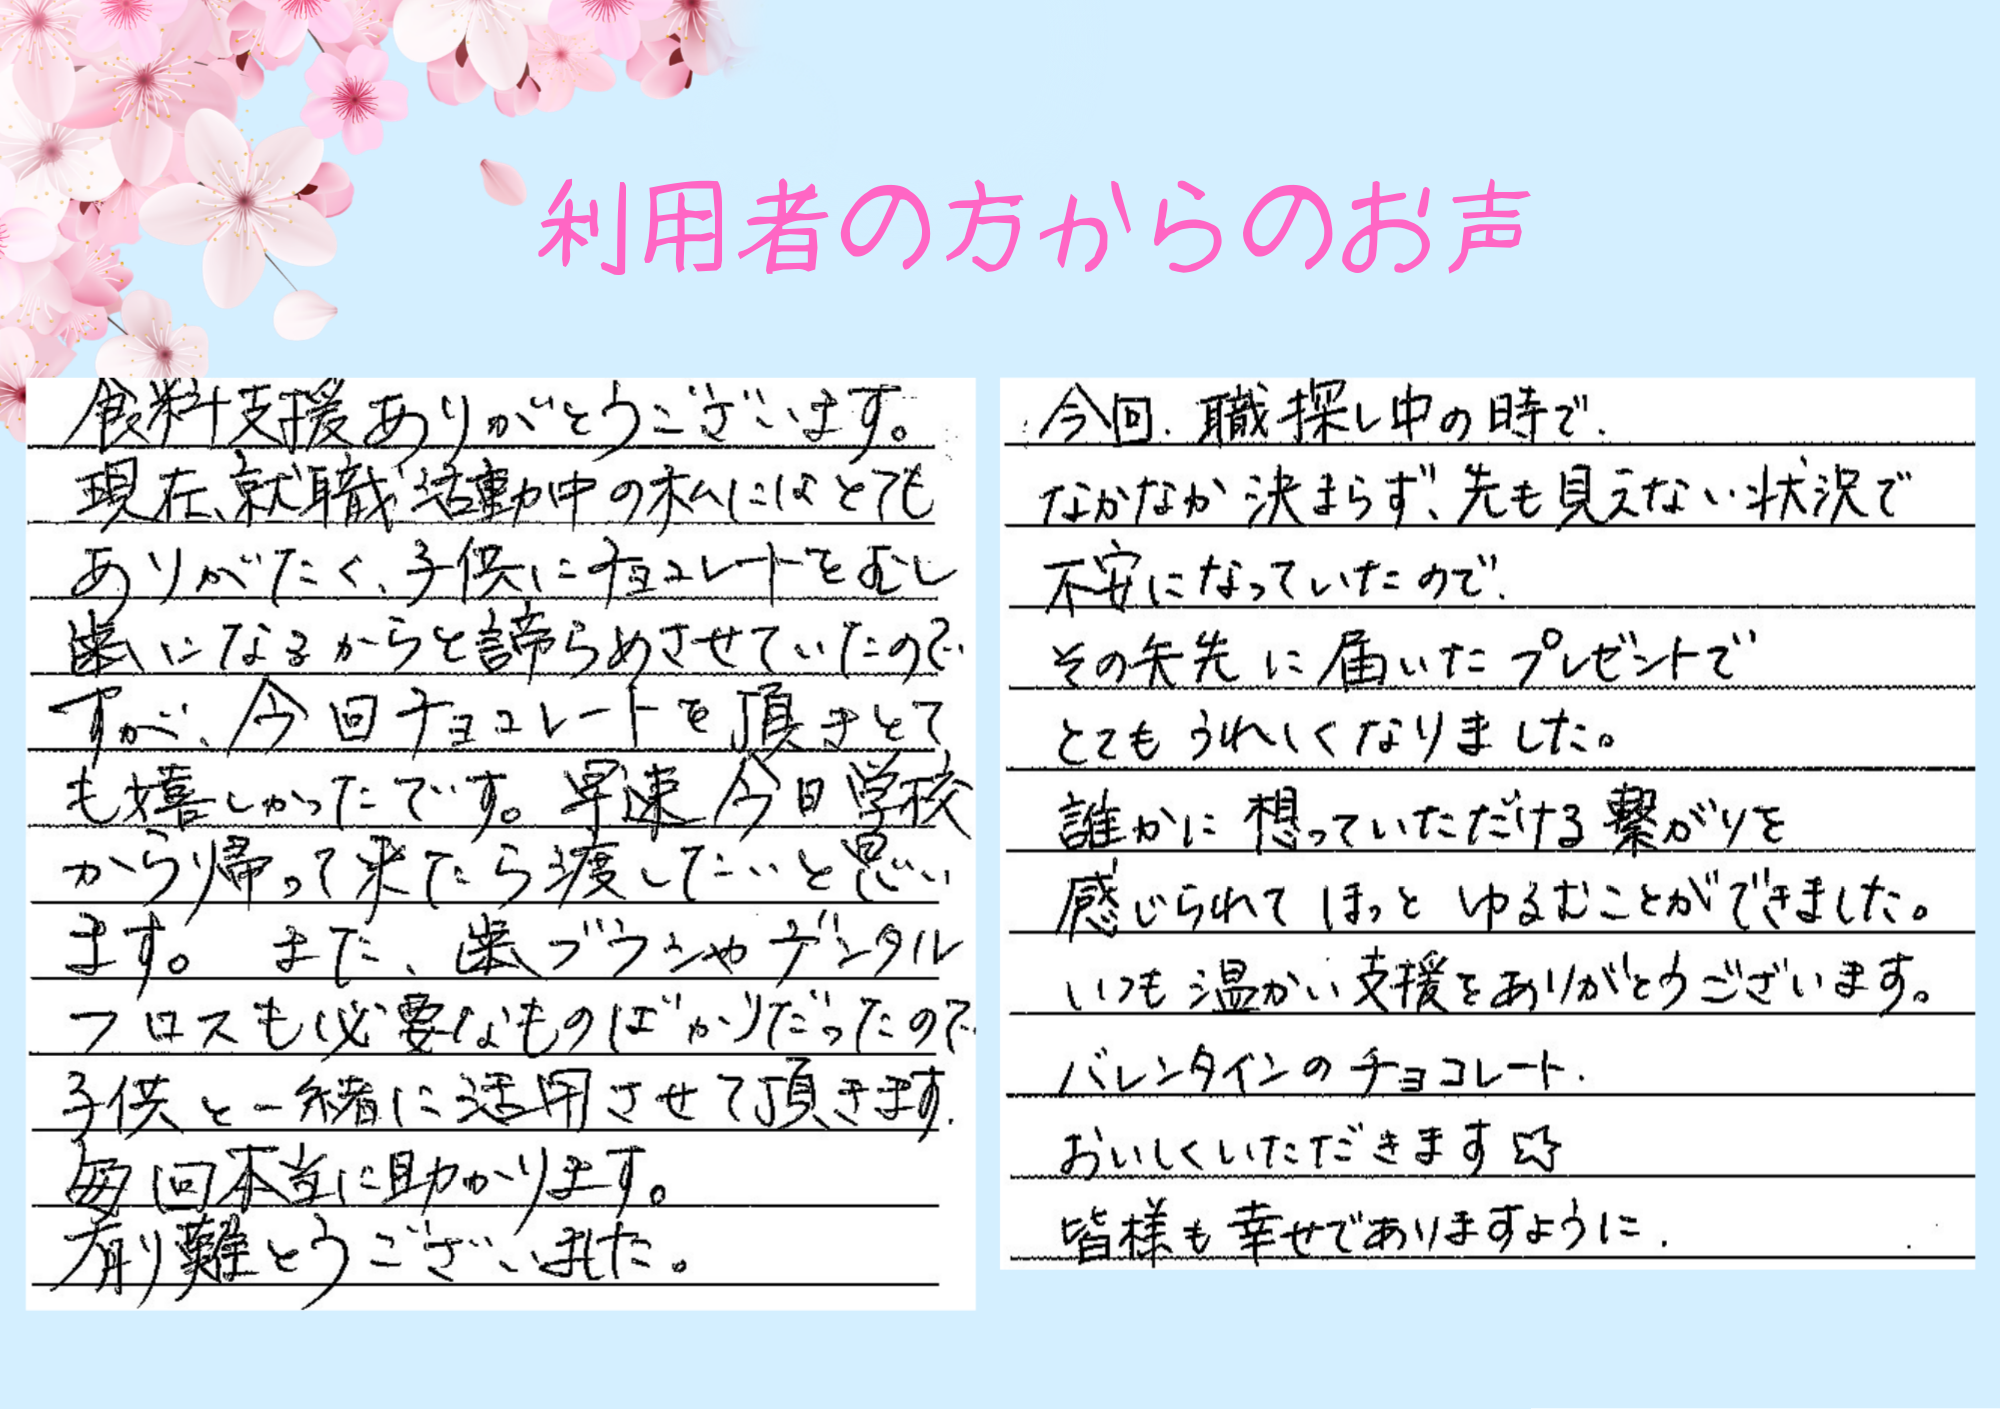 利用者の方からのお声
食料支援ありがとうございます。
現在、就職活動中の私にはとても
ありがたく、子供にチョコレートをむし
歯になるからと諦らめさせていたので
すが、今回チョコレートを頂きとて
も嬉しかったです。早速今日学校
から帰って来たら渡したいと思い
ます。 また、歯ブラシやデンタル
フロスも必要なものばかりだったので
子供と一緒に活用させて頂きます.
毎回本当に助かります。
有り難とうございました。
今回.職探し中の時で.
なかなか決まらず、先も見えない状況で
不安になっていたので.
その矢先に届いたプレゼントで
とてもうれしくなりました。
誰かに想っていただける繋がりを
感じられてほっとゆるむことができました。
いつも温かい支援をありがとうございます。
バレンタインのチョコレート.
おいしくいただきます☆
皆様も幸せでありますように.